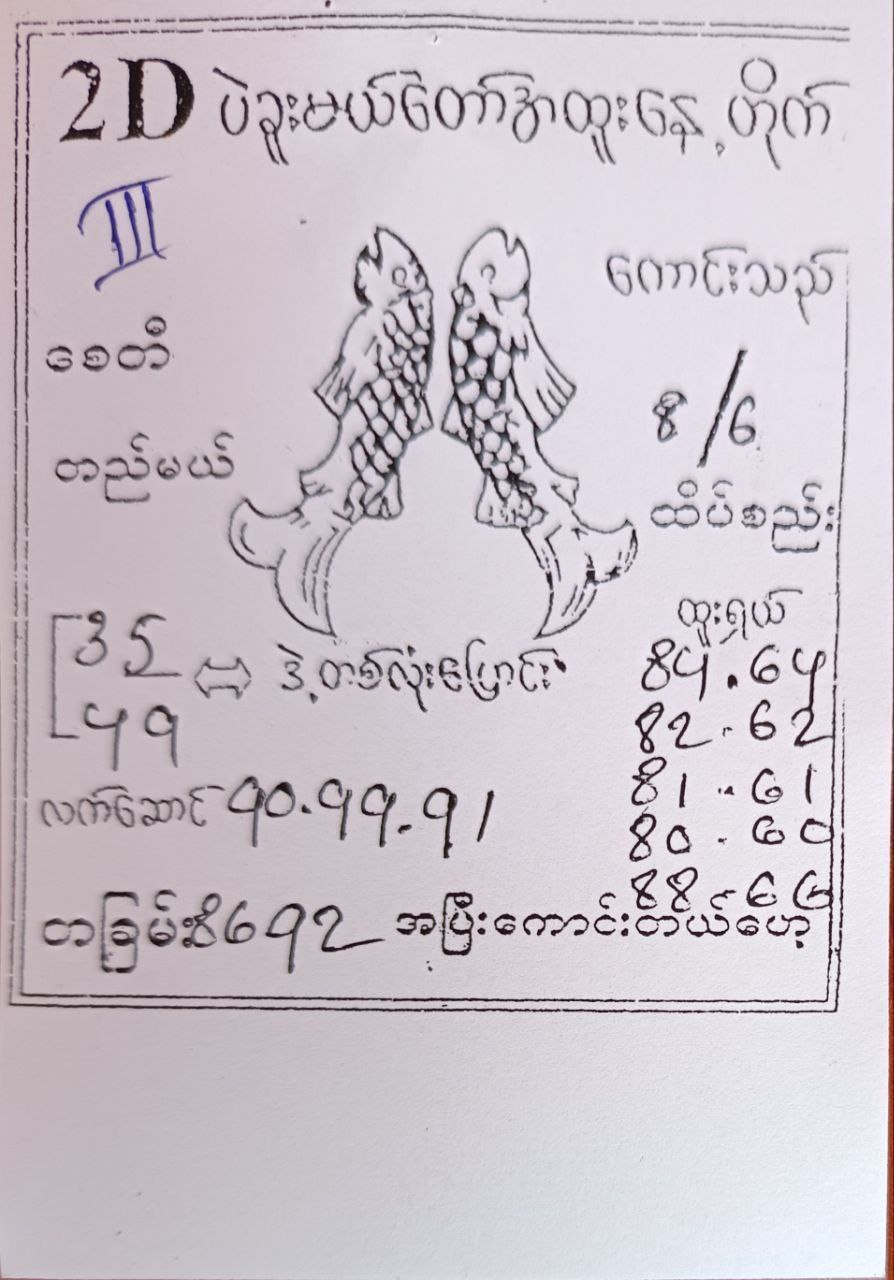 2D ပဲခူးမယ်တော်အထူးနေ့တိုက်
III
ကောင်းသည်
စေတီ
8/6
တည်မယ်
ထိပ်စည်း
ထူးရှယ်
35
49
ဒဲ့တစ်လုံးပြောင်း
84.64
82.62
81.61
80.60
88.66
လက်ဆောင် 90.99.91
တခြမ်း 8692 အပြီးကောင်းတယ်ဟေ့